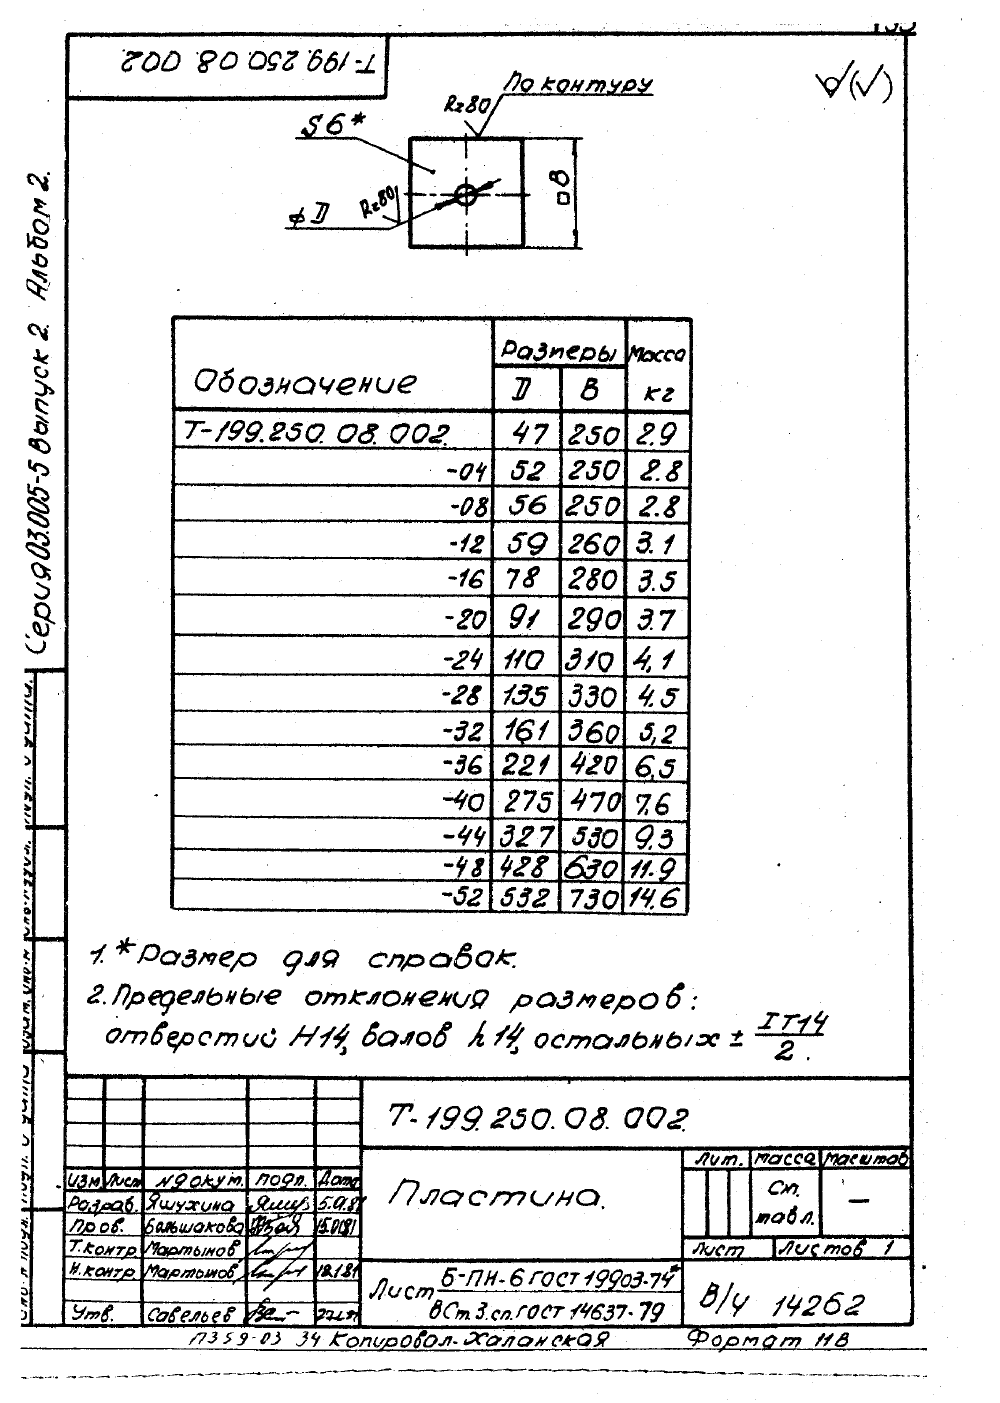 Т-199.250.08.002
По контуру
Rz80
S6*
Rz80
ϕD
□В
Серия 03.005-5 Выпуск 2. Альбом 2.
Обозначение Размеры Масса
D В кг
Т-199.250.08.002. 47 250 2.9
-04 52 250 2.8
-08 56 250 2.8
-12 59 260 3.1
-16 78 280 3.5
-20 91 290 3.7
-24 110 310 4,1
-28 135 330 4.5
-32 161 360 5,2
-36 221 420 6,5
-40 275 470 7,6
-44 327 530 9,3
-48 428 630 11.9
-52 532 730 14.6
1.*Размер для справок.
2. Предельные отклонения размеров:
отверстий H14, валов h14, остальных ± IT14/2.
Т-199.250.08.002.
Лит. Масса Масштаб
Изм Лист N докум. подп. Дата
Пластина.
См. табл. —
Разраб. Яшухина
Пров. Большакова 15.01.81
Т.контр Мартынов
Н.контр Мартынов
Утв. Савельев
Лист Листов 1
Лист Б-ПН-6 ГОСТ 19903-74*
ВСт.3.сп.ГОСТ 14637-79
В/ч 14262
П359-03 34 Копировал-Халанская Формат 11В